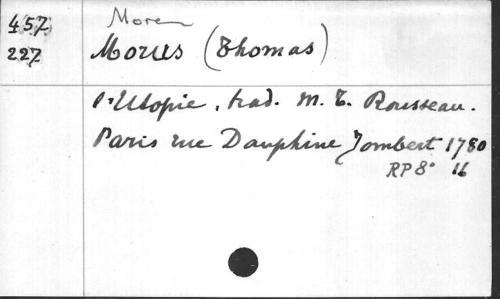 457 More
227 Morus (Thomas)
l'Utopie, trad. M. T. Rousseau.
Paris rue Dauphine Jombert 1780
RP 8° 16